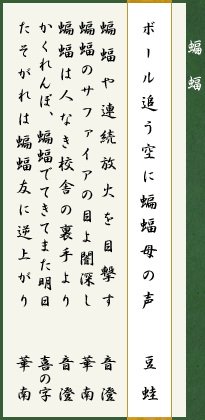 蝙蝠
ボール追う空に蝙蝠母の声 豆蛙
蝙蝠や連続放火を目撃す 音澄
蝙蝠のサファイアの目よ闇深し 華南
蝙蝠は人なき校舎の裏手より 音澄
かくれんぼ、蝙蝠でてきてまた明日 喜の字
たそがれは蝙蝠友に逆上がり 華南